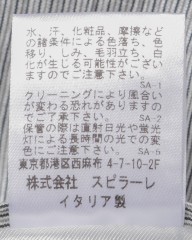 水、汗、化粧品、摩擦など
の諸条件による色落ち、色
移り、しみ、毛羽立ち、白
化が生じる可能性がござい
ますのでご注意下さい。
SA-1
クリーニングにより風合い
が変わる恐れがありますの
でご了承下さい。
SA-2
保管の際は直射日光や蛍光
灯による長時間の光での変
色にご注意下さい。
東京都港区西麻布 4-7-10-2F
株式会社 スピラーレ
イタリア製